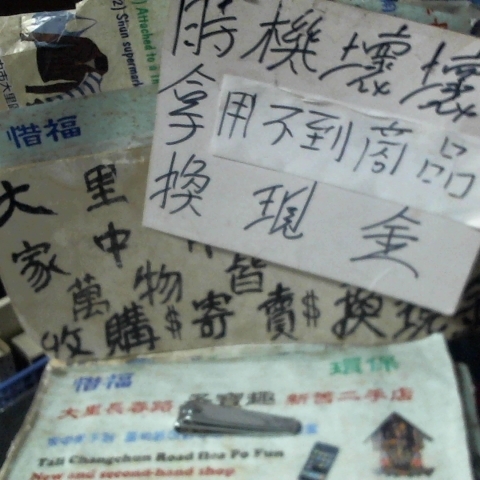 2) Attached to a
Shun supermar
惜福
時機壞壞
拿用不到商品
換現金
大里
家中
萬物皆
收購$寄賣$換現
惜福 環保
大里長春路 否寶趣 新舊二手店
Tali Changchun Road Hoa Po Fun
New and second-hand shop